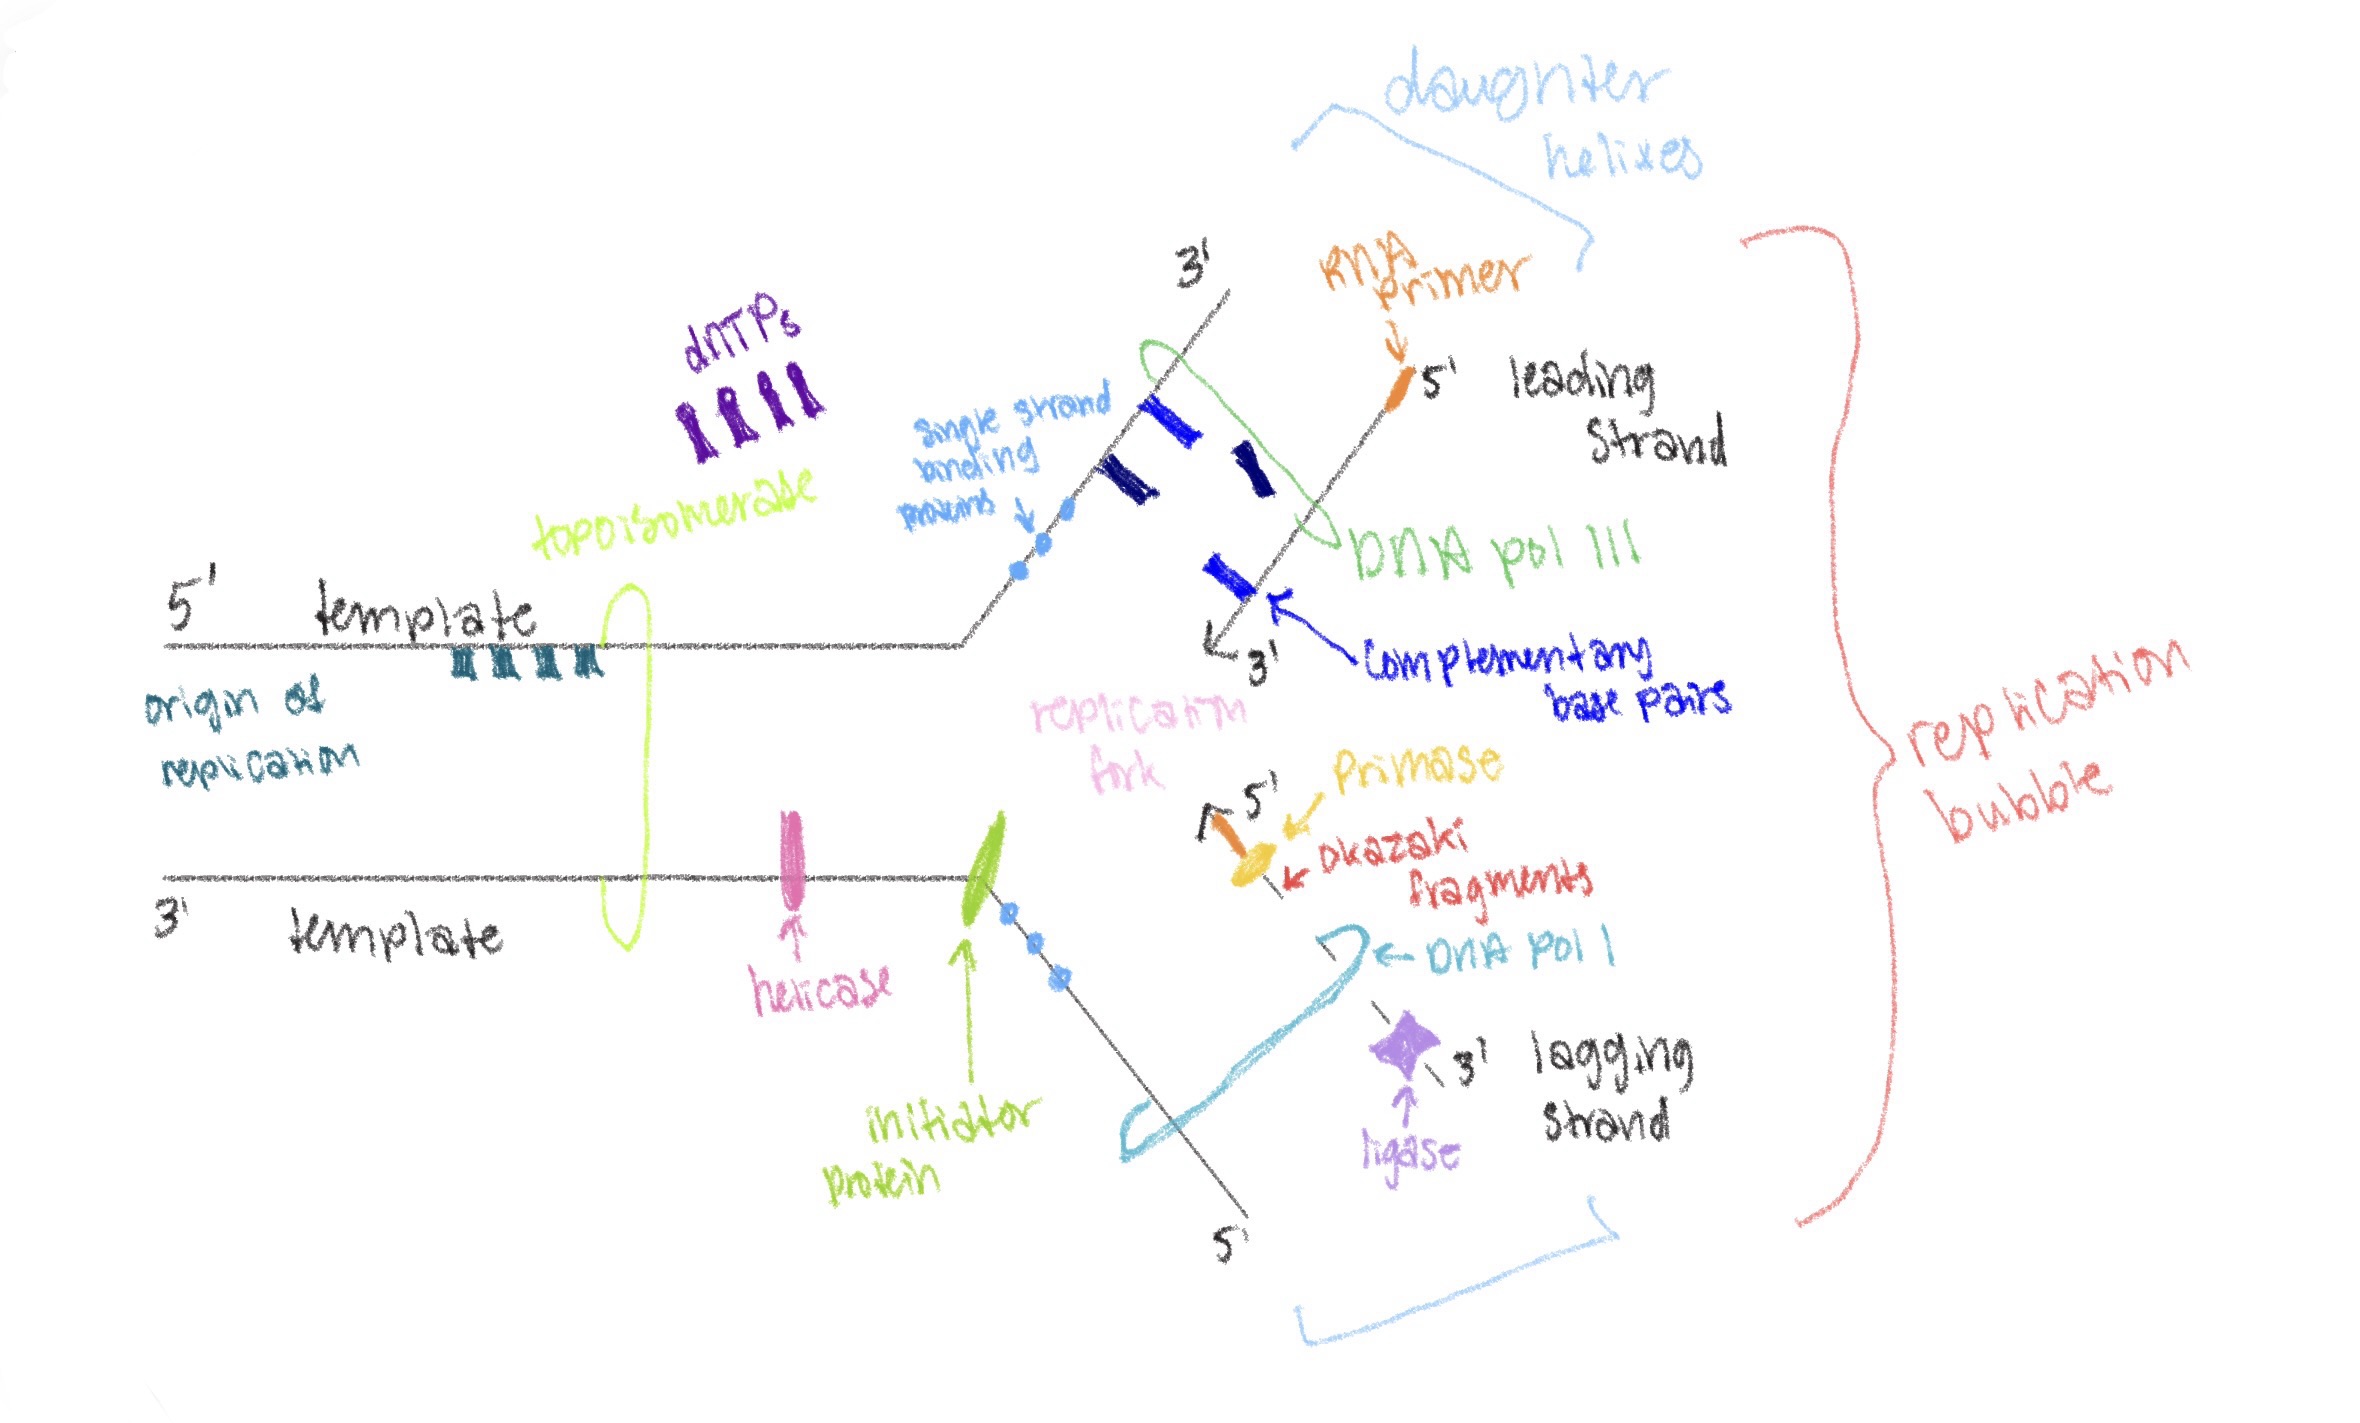 daughter
helixes
3'
RNA
primer
dNTPs
5' leading
strand
single strand
binding
proteins
topoisomerase
DNA pol III
5' template
3'
complementary
base pairs
origin of
replication
replication
fork
replication
bubble
primase
5'
okazaki
fragments
3' template
DNA pol I
helicase
3' lagging
strand
initiator
protein
ligase
5'